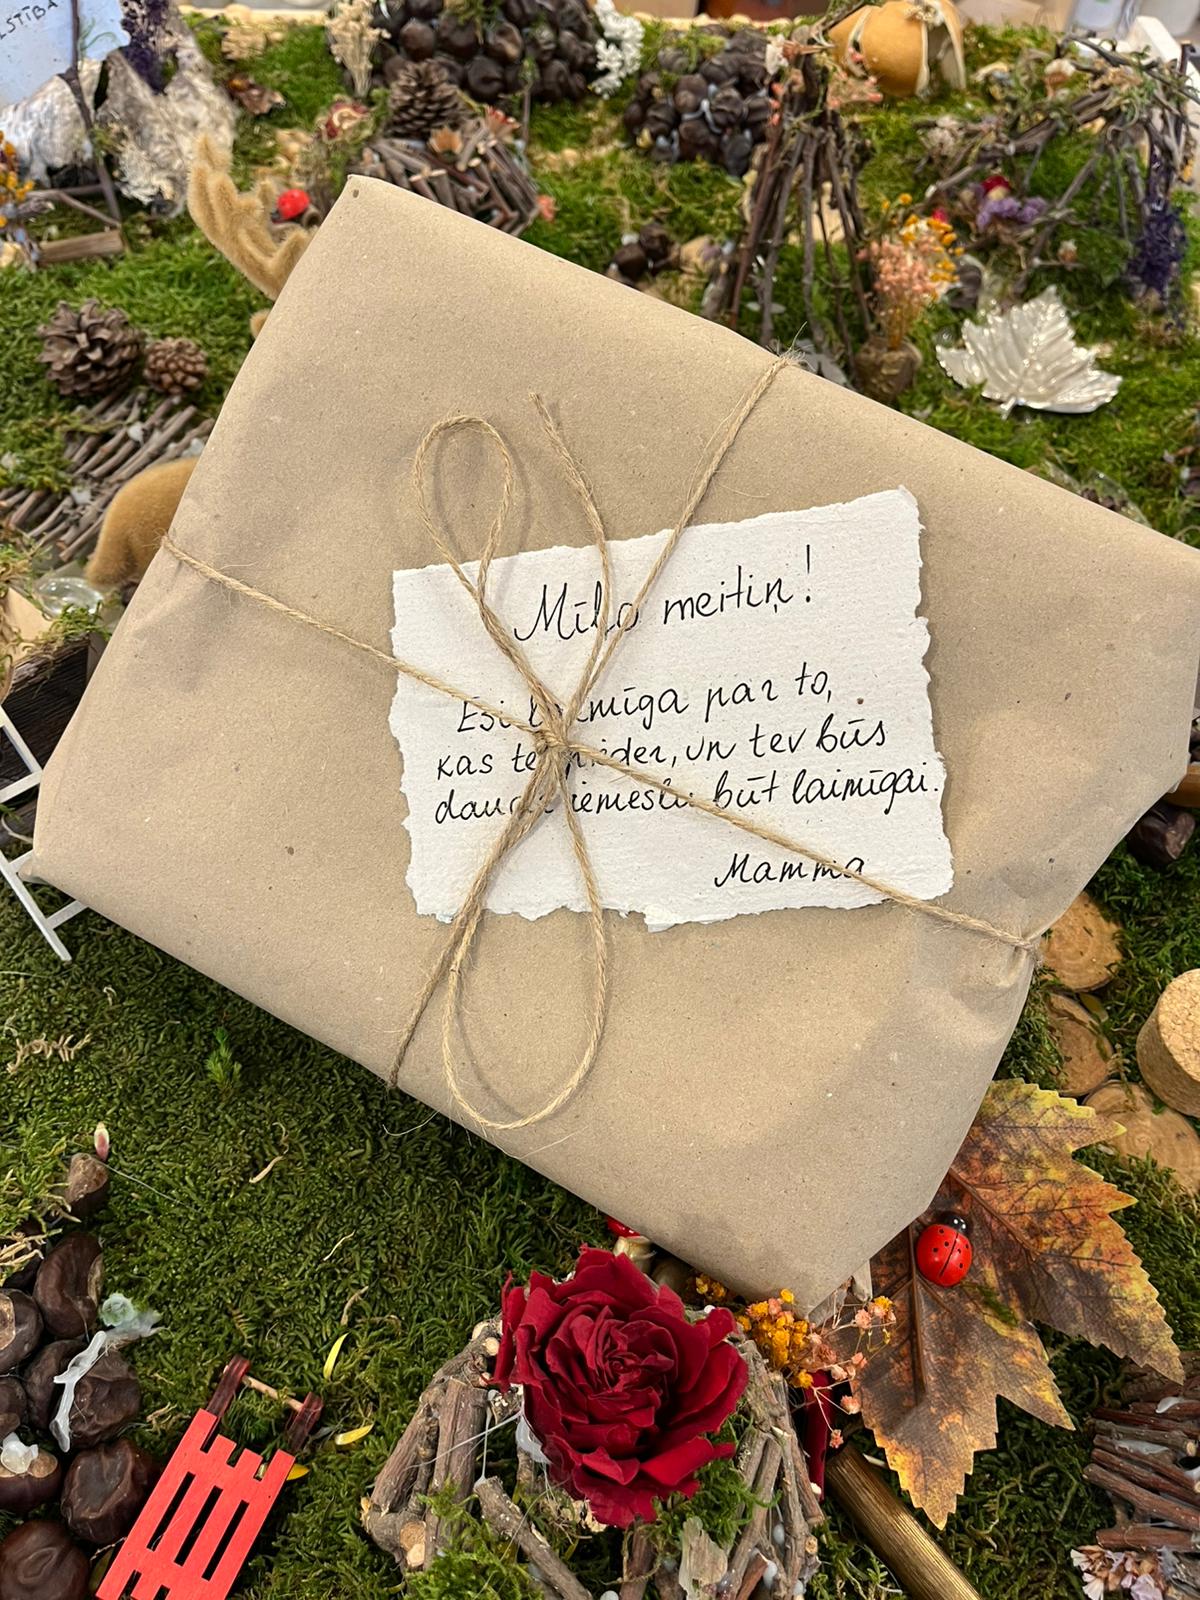 LSTĪBA
Mīļo meitiņ!
Esi laimīga par to,
kas tev pieder, un tev būs
daudz iemeslu būt laimīgai.
Mamma